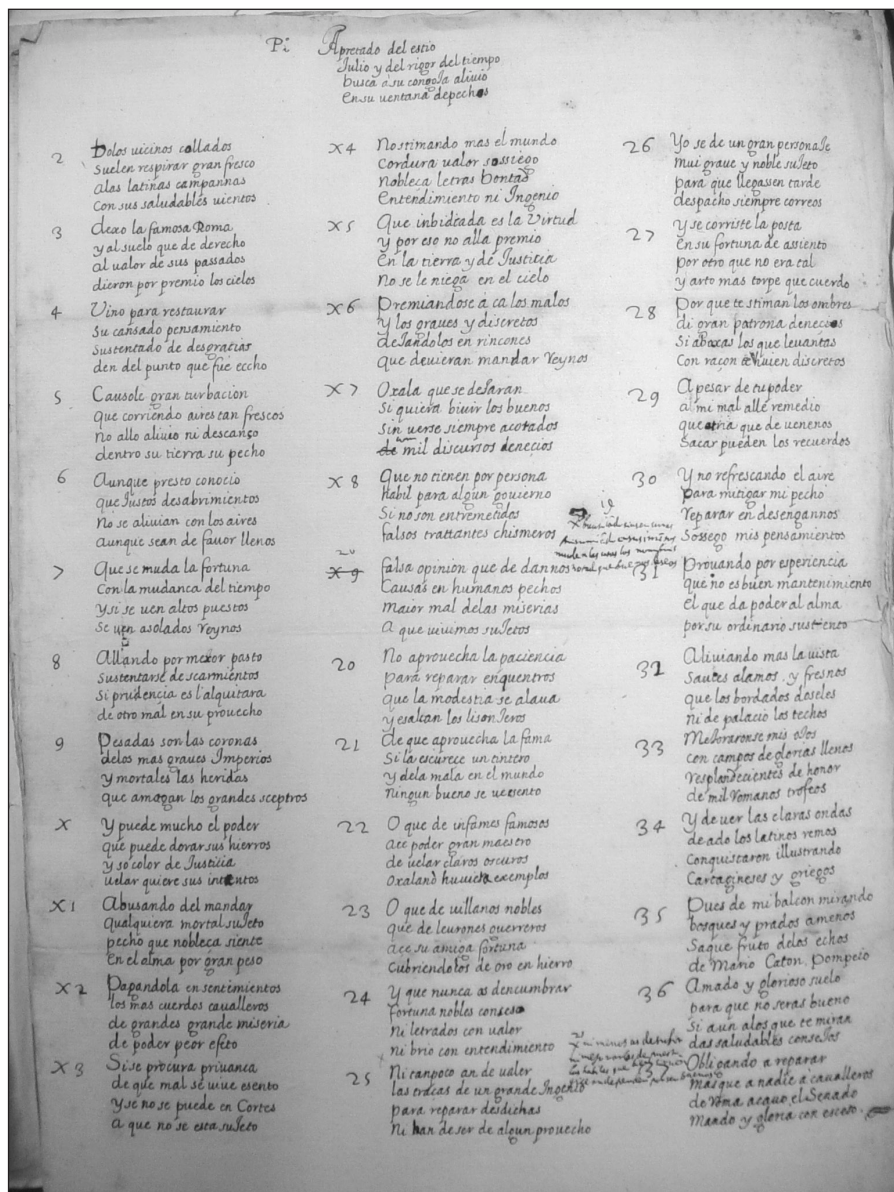 Pi Apretado del estio
Julio y del rigor del tiempo
busca a su congoJa aliuio
En su uentana de pechos
2 Dolos uicinos collados
Suelen respirar gran fresco
alas latinas campannas
Con sus saludables uientos
3 dexo la famosa Roma
y al suelo que de derecho
al ualor de sus passados
dieron por premio los cielos
4 Vino para restaurar
Su cansado pensamiento
Sustentado de desgratias
den del punto que fue eccho
5 Causole gran turbacion
que corriendo aires tan frescos
no allo aliuio ni descanço
dentro su tierra su pecho
6 Aunque presto conocio
que Justos desabrimientos
No se aliuian con los aires
aunque sean de fauor llenos
7 Que se muda la fortuna
Con la mudanca del tiempo
Y si se uen altos puestos
Se uen asolados Reynos
8 Allando por mexor pasto
Sustentarse de scarmientos
Si prudencia es l'alquitara
de otro mal en su prouecho
9 Pesadas son las coronas
delos mas graues Imperios
y mortales las heridas
que amagan los grandes sceptros
X Y puede mucho el poder
que puede dorar sus hierros
y so color de Justicia
uelar quiere sus intentos
X1 Abusando del mandar
qualquiera mortal suJeto
pecho que nobleça siente
En el alma por gran peso
X2 Papandola en sentimientos
los mas cuerdos caualleros
de grandes grande miseria
de poder peor efeto
X3 Si se procura priuanca
de que mal se uiue esento
Y se no se puede en Cortes
a que no se esta suJeto
X4 No stimando mas el mundo
Cordura ualor sossiego
Nobleca letras bontad
Entendimiento ni Ingenio
X5 Que inbidiada es la Virtud
y por eso no alla premio
En la tierra y de Justicia
No se le niega en el cielo
X6 Premiandose a ca los malos
Y los graues y discretos
deJandolos en rincones
que deuieran mandar Reynos
X7 Oxala que se deJaran
Si quiera biuir los buenos
Sin uerse siempre acotados
de mil discursos de necios
X8 Que no tienen por persona
habil para algun gouierno
Si no son entremetidos
falsos trattantes chismeros
19
20
X9 falsa opinion que de dannos
Causas en humanos pechos
maior mal delas miserias
a que uiuimos suJetos
20 No aprouecha la paciencia
para reparar enquentros
que la modestia se alaua
y esaltan los lisonJeros
21 de que aprouecha la fama
Si la escurece un tintero
y dela mala en el mundo
ningun bueno se ue esento
22 O que de infames famosos
ace poder gran maestro
de uelar claros oscuros
Oxala no huuiera exemplos
23 O que de uillanos nobles
que de leurones guerreros
ace su amiga fortuna
Cubriendolos de oro en hierro
24 Y que nunca as dencumbrar
fortuna nobles conseJo
Ni letrados con ualor
ni brio con entendimiento
25
25 Ni tanpoco an de ualer
las tracas de un grande Ingenio
para reparar desdichas
Ni han de ser de algun prouecho
26 Yo se de un gran personaJe
mui graue y noble suJeto
para que llegassen tarde
despacho siempre correos
27 Y se corriste la posta
En su fortuna de assiento
por otro que no era tal
y arto mas torpe que cuerdo
28 Por que te stiman los ombres
di gran patrona de necios
Si abaxas los que leuantas
Con raçon te huien discretos
29 A pesar de tu poder
a mi mal alle remedio
que atria que de uenenos
Sacar pueden los recuerdos
30 Y no refrescando el aire
para mitigar mi pecho
Reparar en desengannos
Sossego mis pensamientos
31 Prouando por esperiencia
que no es buen mantenimiento
el que da poder al alma
por su ordinario sustento
32 Aliuiando mas la uista
Sauces alamos y fresnos
que los bordados doseles
ni de palacio los techos
33 MeJoraronse mis oJos
con campos de glorias llenos
resplandecientes de honor
de mil Romanos trofeos
34 Y de uer las claras ondas
de ado los latinos remos
Conquistaron illustrando
Cartagineses y griegos
35 Pues de mi balcon mirando
bosques y prados amenos
Saque fruto delos echos
de Mario Caton Pompeio
36 Amado y glorioso suelo
para que no seras bueno
Si aun alos que te miran
das saludables conseJos
37 Obligando a reparar
mas que a nadie a caualleros
de Roma acquo el Senado
Mando y gloria con